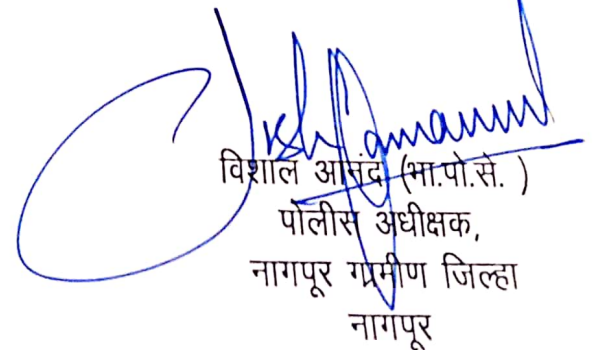 विशाल आनंद (भा.पो.से. )
पोलीस अधीक्षक,
नागपूर ग्रामीण जिल्हा
नागपूर